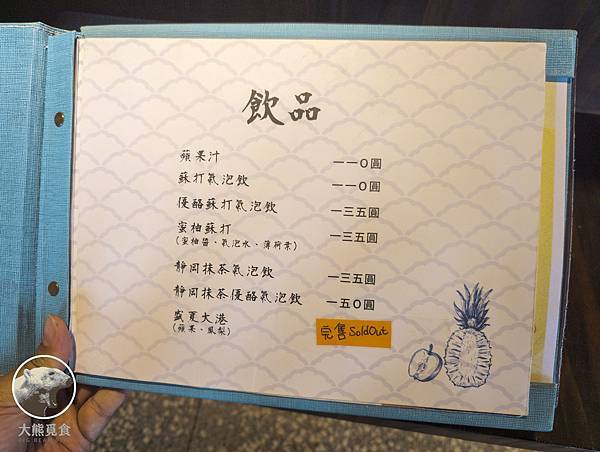 飲品
蘋果汁 一一０圓
蘇打氣泡飲 一一０圓
優酪蘇打氣泡飲 一三五圓
蜜柚蘇打 一三五圓
(蜜柚醬、氣泡水、薄荷葉)
靜岡抹茶氣泡飲 一三五圓
靜岡抹茶優酪氣泡飲 一五０圓
盛夏大港 完售 SoldOut
(蘋果、鳳梨)
大熊覓食